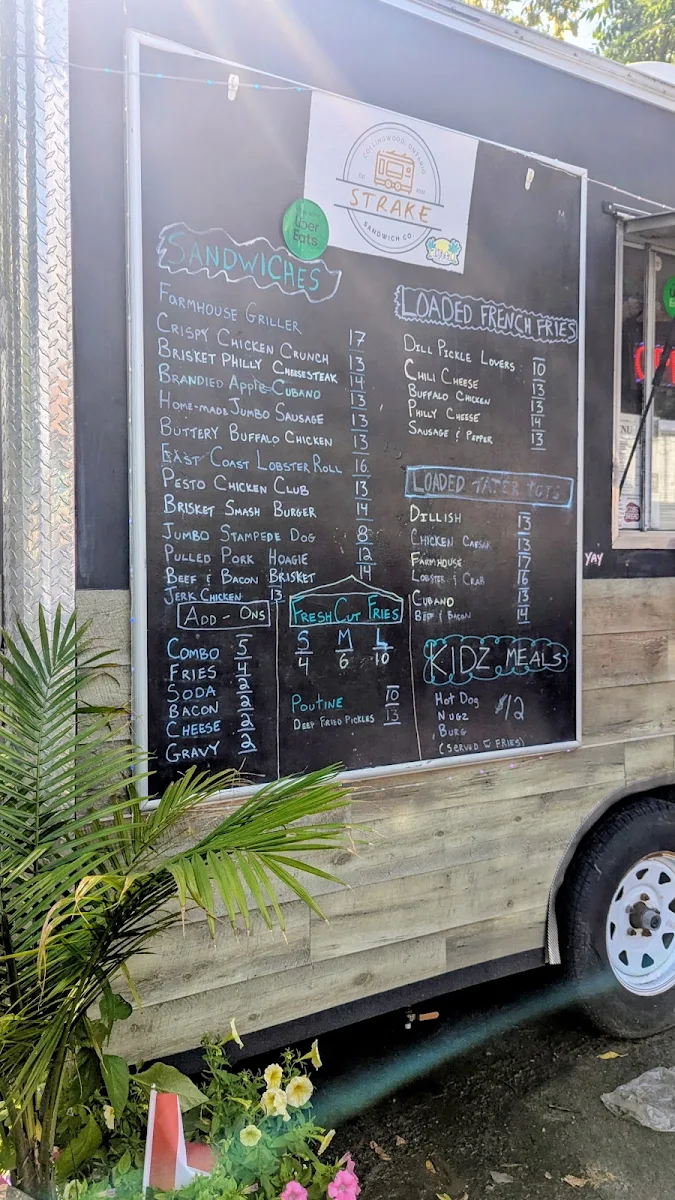 COLLINGWOOD, ONTARIO
STRAKE
SANDWICH CO.
Uber
Eats
SANDWICHES
FARMHOUSE GRILLER 17
CRISPY CHICKEN CRUNCH 13
BRISKET PHILLY CHEESESTEAK 14
BRANDIED APPLE CUBANO 13
HOME-MADE JUMBO SAUSAGE 13
BUTTERY BUFFALO CHICKEN 13
EAST COAST LOBSTER ROLL 16
PESTO CHICKEN CLUB 13
BRISKET SMASH BURGER 14
JUMBO STAMPEDE DOG 8
PULLED PORK HOAGIE 12
BEEF & BACON BRISKET 14
JERK CHICKEN 13
ADD-ONS
COMBO 5
FRIES 4
SODA 2
BACON 2
CHEESE 2
GRAVY 2
FRESH CUT FRIES
S M L
4 6 10
POUTINE 10
DEEP FRIED PICKLES 13
LOADED FRENCH FRIES
DILL PICKLE LOVERS 10
CHILI CHEESE 13
BUFFALO CHICKEN 13
PHILLY CHEESE 14
SAUSAGE & PEPPER 13
LOADED TATER TOTS
DILLISH 13
CHICKEN CAESAR 13
FARMHOUSE 17
LOBSTER & CRAB 16
CUBANO 13
BEEF & BACON 14
KIDZ MEALS
HOT DOG
NUGZ $12
BURG
(SERVED W FRIES)
YAY